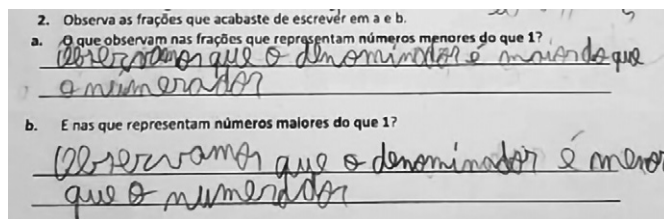 2. Observa as frações que acabaste de escrever em a e b.
a. O que observam nas frações que representam números menores do que 1?
Observamos que o denominador é maior do que
o numerador
b. E nas que representam números maiores do que 1?
Observamos que o denominador é menor
que o numerador